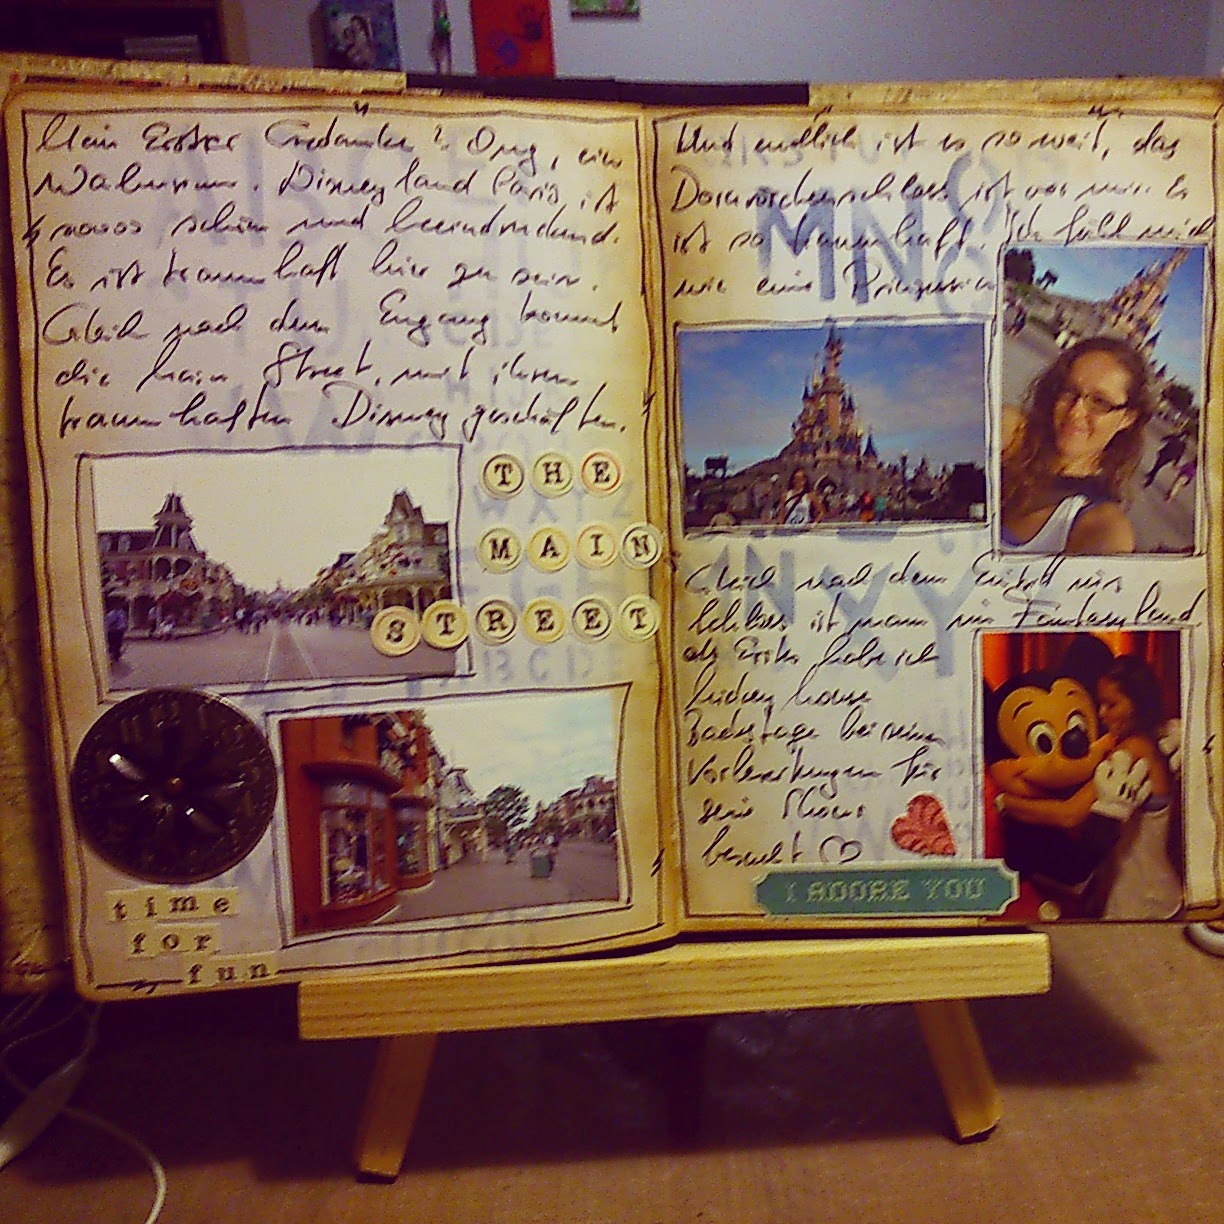 Mein Erster Gedanke? Omg, ein
Wahnsinn. Disneyland Paris ist
soooo schön und beeindruckend.
Es ist traumhaft hier zu sein.
Gleich nach dem Eingang kommt
die Main Street, mit ihren
traumhaften Disney geschäften.
THE
MAIN
STREET
time
for
fun
Und endlich ist es so weit, das
Dornröschenschloss ist vor mir. Es
ist so traumhaft. Ich fühl mich
wie eine Prinzessin
Gleich nach dem Eintritt ins
Schloss ist man im Fantasyland.
als Erstes habe ich
Mickey Mouse
Backstage bei seinen
Vorbereitungen für
seine Shows
besucht
I ADORE YOU